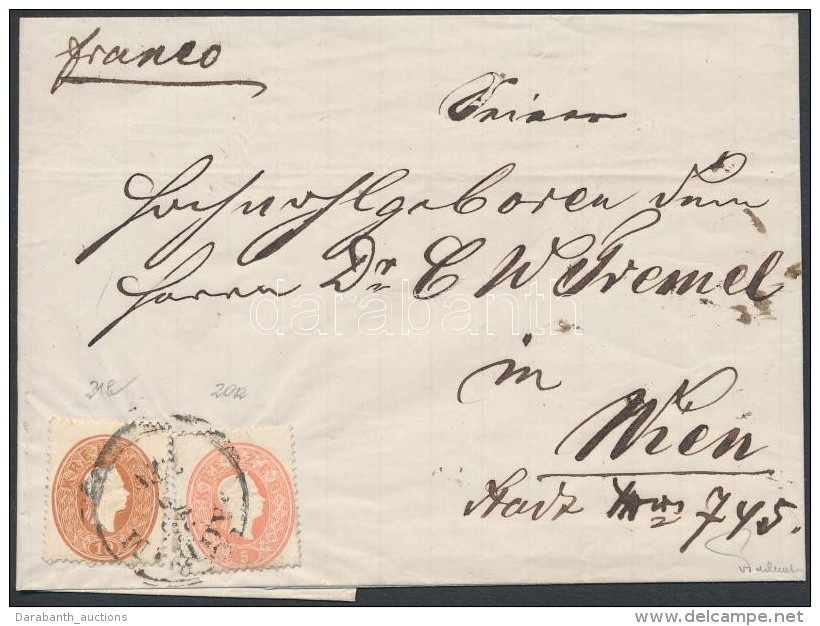 franco
Seiner
Hochwohlgeboren dem
Herrn Dr C W Tremel
darabanth
in
Wien
Stadt 745.
21B 20a
KREUZER
5
Darabanth_auctions
www.delcampe.net